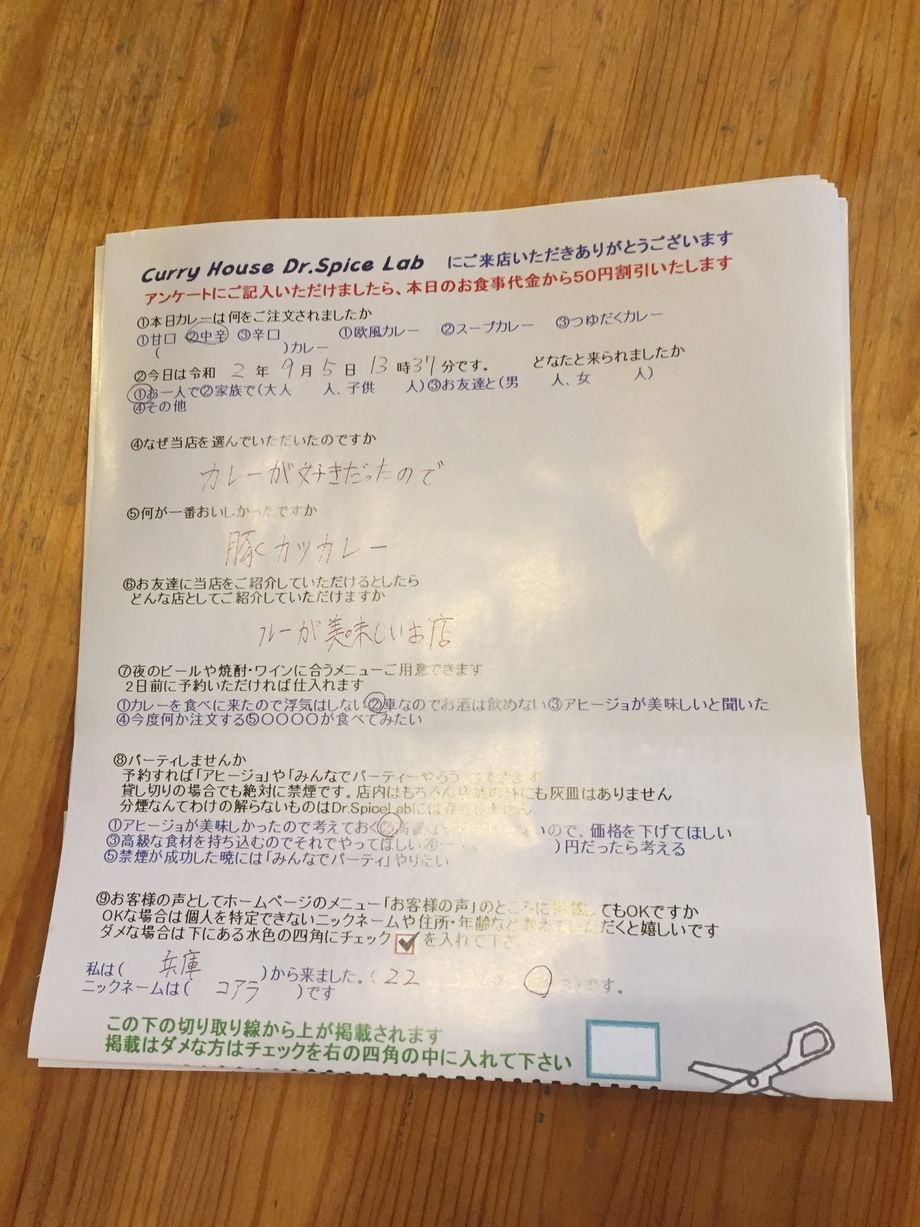 Curry House Dr.Spice Lab にご来店いただきありがとうございます
アンケートにご記入いただけましたら、本日のお食事代金から50円割引いたします
①本日カレーは何をご注文されましたか
①甘口 ②中辛 ③辛口 ①欧風カレー ②スープカレー ③つゆだくカレー
( )カレー
②今日は令和 2 年 9 月 5 日 13 時 37 分です。 どなたと来られましたか
①お一人で②家族で(大人 人、子供 人)③お友達と(男 人、女 人)
④その他
④なぜ当店を選んでいただいたのですか
カレーが好きだったので
⑤何が一番おいしかったですか
豚カツカレー
⑥お友達に当店をご紹介していただけるとしたら
どんな店としてご紹介していただけますか
ルーが美味しいお店
⑦夜のビールや焼酎・ワインに合うメニューご用意できます
2日前に予約いただければ仕入れます
①カレーを食べに来たので浮気はしない②車なのでお酒は飲めない③アヒージョが美味しいと聞いた
④今度何か注文する⑤○○○○が食べてみたい
⑧パーティしませんか
予約すれば「アヒージョ」や「みんなでパーティーやろう
貸し切りの場合でも絶対に禁煙です。店内はもちろん にも灰皿はありません
分煙なんてわけの解らないものはDr.SpiceLabには存在しません
①アヒージョが美味しかったので考えておく② ないので、価格を下げてほしい
③高級な食材を持ち込むのでそれでやってほしい④一 ( )円だったら考える
⑤禁煙が成功した暁には「みんなでパーティ」やりたい
⑨お客様の声としてホームページのメニュー「お客様の声」のところに掲載してもOKですか
OKな場合は個人を特定できないニックネームや住所・年齢など教えていただくと嬉しいです
ダメな場合は下にある水色の四角にチェック☑を入れて下さい
私は( 兵庫 )から来ました。( 22 です。
ニックネームは( コアラ )です
この下の切り取り線から上が掲載されます
掲載はダメな方はチェックを右の四角の中に入れて下さい